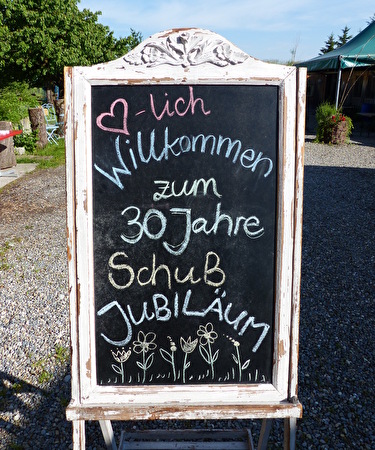 ♥-lich
Willkommen
zum
30 Jahre
Schuß
JUBILÄUM